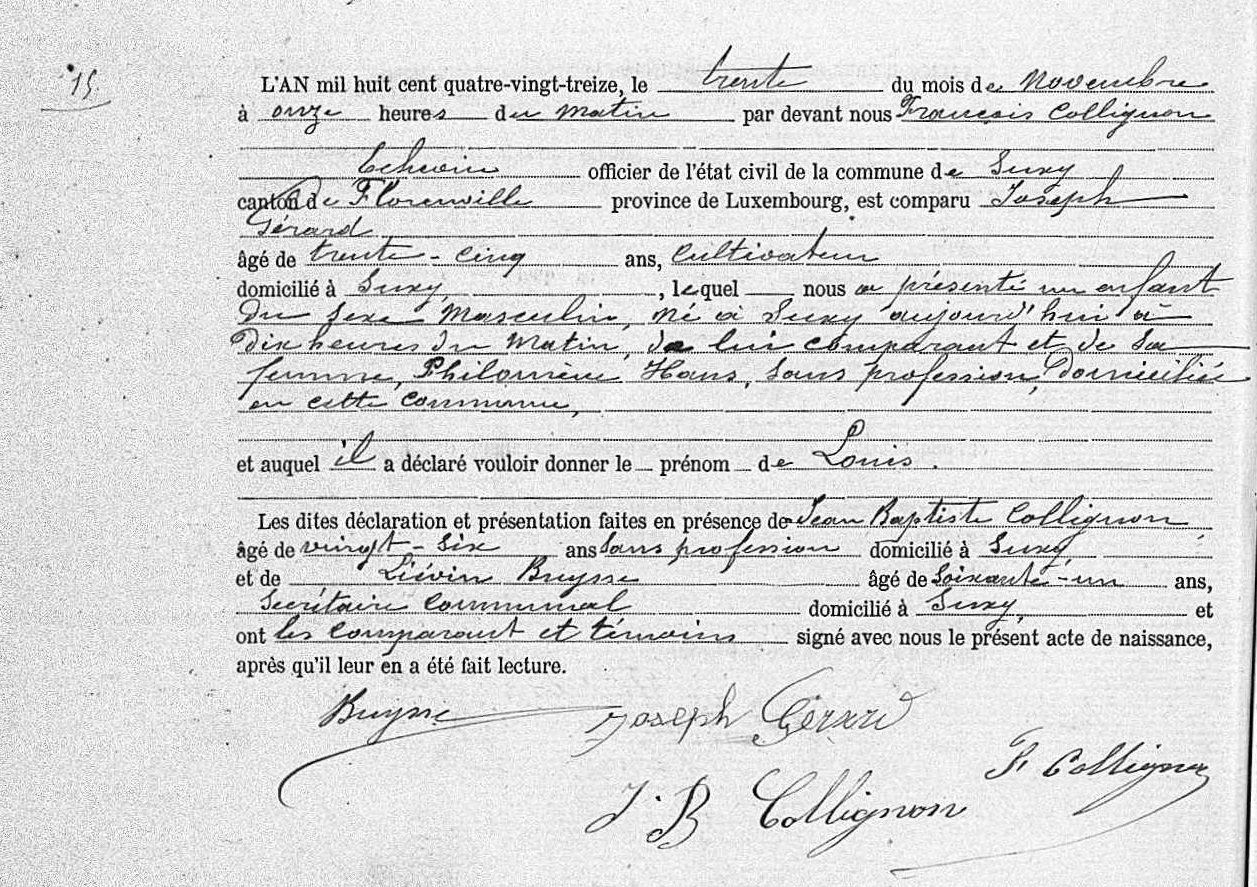 15.
L'AN mil huit cent quatre-vingt-treize, le trente du mois de Novembre
à onze heures du matin par devant nous François Collignon
Echevin officier de l'état civil de la commune de Suxy
canton de Florenville province de Luxembourg, est comparu Joseph
Gérard
âgé de trente-cinq ans, Cultivateur
domicilié à Suxy, lequel nous a présenté un enfant
du sexe Masculin, né à Suxy aujourd'hui à
Dix heures du Matin, de lui comparant et de sa
femme, Philomène Hans, sans profession, domiciliée
en cette commune,
et auquel il a déclaré vouloir donner le prénom de Louis.
Les dites déclaration et présentation faites en présence de Jean Baptiste Collignon,
âgé de vingt-six ans sans profession domicilié à Suxy,
et de Liévin Buysse âgé de soixante-un ans,
Secrétaire Communal domicilié à Suxy, et
ont les comparant et témoins signé avec nous le présent acte de naissance,
après qu'il leur en a été fait lecture.
Buysse Joseph Gérard
F Collignon
J. B Collignon